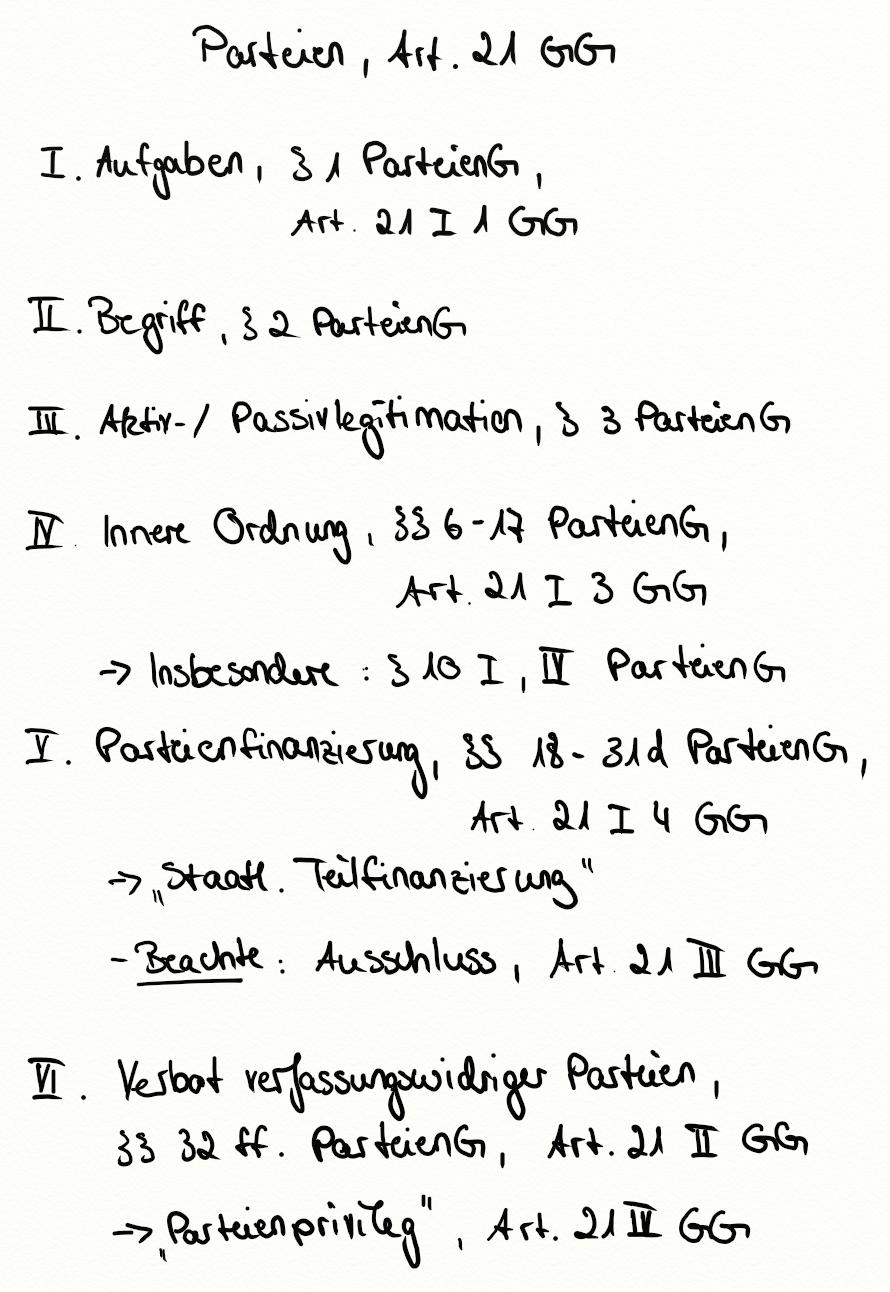 Parteien, Art. 21 GG
I. Aufgaben, § 1 ParteienG,
Art. 21 I 1 GG
II. Begriff, § 2 ParteienG
III. Aktiv-/ Passivlegitimation, § 3 ParteienG
IV. Innere Ordnung, §§ 6-17 ParteienG,
Art. 21 I 3 GG
→ Insbesondere: § 10 I, IV ParteienG
V. Parteienfinanzierung, §§ 18-31d ParteienG,
Art. 21 I 4 GG
→ „Staatl. Teilfinanzierung"
- Beachte: Ausschluss, Art. 21 III GG
VI. Verbot verfassungswidriger Parteien,
§§ 32 ff. ParteienG, Art. 21 II GG
→ „Parteienprivileg", Art. 21 IV GG